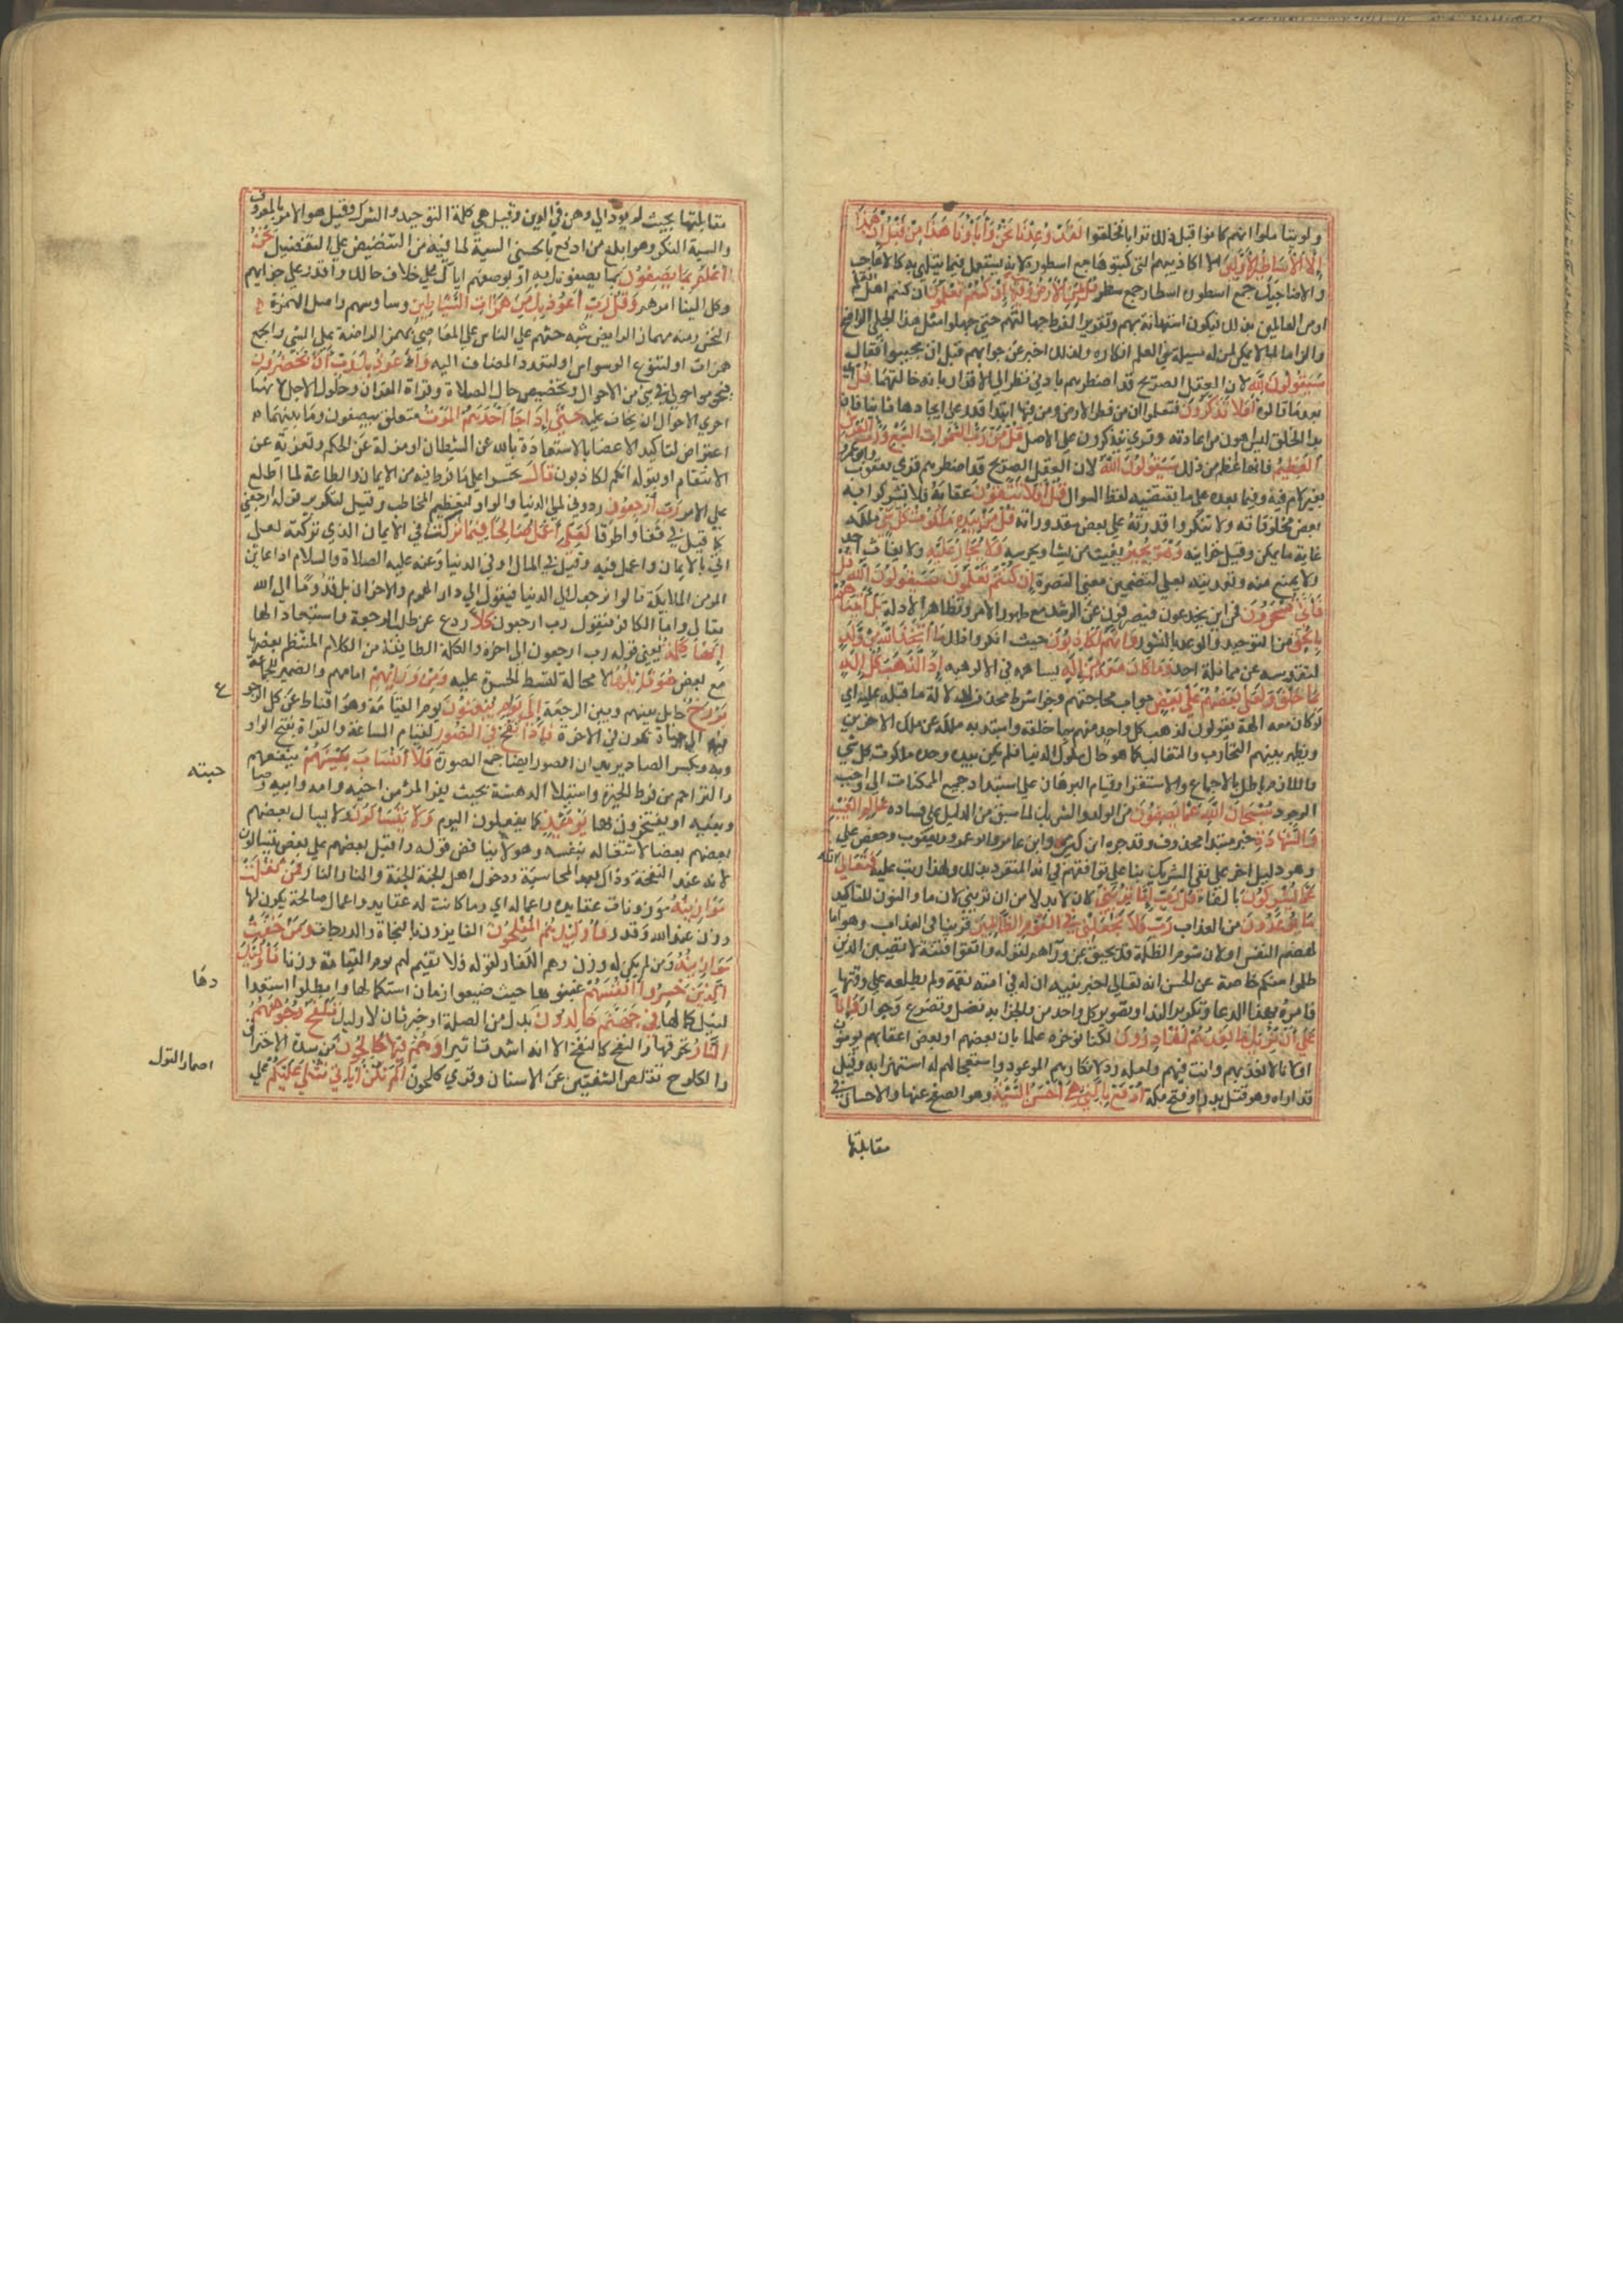 ولم يتأملوا انهم كانوا قبل ذلك ترابا فخلقوا لَقَدْ وُعِدْنَا نَحْنُ وَأَبَاؤُنَا هَذَا مِنْ قَبْلُ إِنْ هَذَا
إِلَّا أَسَاطِيرُ الأَوَّلِينَ الا اكاذيبهم التى كتبوها جمع اسطورة لانه يستعمل فيما يتلهى به كالاعاجيب
والاضاحيك جمع اسطورة اسطار جمع سطر قُلْ لِمَنِ الأَرْضُ وَمَنْ فِيهَا إِنْ كُنْتُمْ تَعْلَمُونَ ان كنتم اهل العلم
او من العالمين بذلك فيكون استهانة بهم وتقديرا لفرط جهالتهم حتى جهلوا مثل هذا الجلى الواضح
والزاما لما لا يمكن لمن له مسكة من العلم انكاره ولذلك اخبر عن جوابهم قبل ان يجيبوا فقال
سَيَقُولُونَ لِلَّهِ لان العقل الصريح قد اضطرهم بادنى نظر الى الاقرار بانه خالقها قُلْ اي
بعد ما قالوه أَفَلَا تَذَكَّرُونَ فتعلموا ان من فطر الارض ومن فيها ابتداء قدر على ايجادها ثانيا فان
بدا الخلق ليس اهون من اعادته وقرئ تتذكرون على الاصل قُلْ مَنْ رَبُّ السَّمَوَاتِ السَّبْعِ وَرَبُّ الْعَرْشِ
الْعَظِيمِ فانها اعظم من ذلك سَيَقُولُونَ اللَّهُ لان العقل الصريح قد اضطرهم قرئ يعقوب وابو عمرو
بغير لام فيه وفيما بعده على ما يقتضيه لفظ السوال قُلْ أَفَلَا تَتَّقُونَ عقابه فلا تشركوا به
بعض مخلوقاته ولا تنكروا قدرته على بعض مقدوراته قُلْ مَنْ بِيَدِهِ مَلَكُوتُ كُلِّ شَيْءٍ ملكه
غاية ما يمكن وقيل خزاينه وَهُوَ يُجِيرُ يغيث من يشا ويحرسه وَلَا يُجَارُ عَلَيْهِ ولا يغاث احد
ولا يمنع منه وتعديته بعلى لتضمين معنى النصرة إِنْ كُنْتُمْ تَعْلَمُونَ سَيَقُولُونَ اللَّهُ قُلْ
فَأَنَّى تُسْحَرُونَ فمن اين يخدعون فيصرفون عن الرشد مع ظهور الامر وتظاهر الادلة بَلْ أَتَيْنَاهُمْ
بِالْحَقِّ من التوحيد والوعد بالنشور وَإِنَّهُمْ لَكَاذِبُونَ حيث انكروا ذلك مَا اتَّخَذَ اللَّهُ مِنْ وَلَدٍ
لتقدسه عن مماثلة احد وَمَا كَانَ مَعَهُ مِنْ إِلَهٍ يساهمه في الالوهية إِذًا لَذَهَبَ كُلُّ إِلَهٍ
بِمَا خَلَقَ وَلَعَلَا بَعْضُهُمْ عَلَى بَعْضٍ جواب محاجتهم وجزا شرط محذوف لدلالة ما قبله عليه اي
لو كان معه الهة كما يقولون لذهب كل واحد منهم بما خلقه واستبد به وامتاز ملكه عن ملك الاخرين
وظهر بينهم التحارب والتغالب كما هو حال ملوك الدنيا فلم يكن بيده وحده ملكوت كل شي
واللازم باطل بالاجماع والاستقرا وقيام البرهان على استناد جميع الممكنات الى واجب
الوجود سُبْحَانَ اللَّهِ عَمَّا يَصِفُونَ من الولد والشريك لما سبق من الدليل على فساده عَالِمِ الْغَيْبِ
وَالشَّهَادَةِ خبر مبتدا محذوف وقد جره ابن كثير وابن عامر وابو عمرو ويعقوب وحفص على
وهو دليل اخر على نفى الشريك بناء على توافقهم في انه المتفرد بذلك ولهذا رتب عليه فَتَعَالَى
عَمَّا يُشْرِكُونَ بالفاء قُلْ رَبِّ إِمَّا تُرِيَنِّي ان كان لا بد من ان تريني لان ما والنون للتاكيد
مَا يُوعَدُونَ من العذاب رَبِّ فَلَا تَجْعَلْنِي فِي الْقَوْمِ الظَّالِمِينَ قرينا في العذاب وهو اما
لهضم النفس او لان شوم الظلمة قد يحيق بمن ورآهم لقوله واتقوا فتنة لا تصيبن الذين
ظلموا منكم خاصة عن الحسن انه تعالى اخبر نبيه ان له في امته نقمة ولم يطلعه على وقتها
فامره بهذا الدعا وتكرير الندا وتصدير كل واحد من والجزا به فضل تضرع وجوار وَإِنَّا
عَلَى أَنْ نُرِيَكَ مَا نَعِدُهُمْ لَقَادِرُونَ لكنا نوخره علما بان بعضهم او بعض اعقابهم يومنون
او لانا لا نعذبهم وانت فيهم ولعله رد لانكارهم الموعود واستعجالهم له استهزا به وقيل
قد اراه وهو قتل بدر او فتح مكة ادْفَعْ بِالَّتِي هِيَ أَحْسَنُ السَّيِّئَةَ وهو الصفح عنها والاحسان في
مقابلتها
مقابلتها بحيث لم يود الى وهن في الدين وقيل هى كلمة التوحيد والشرك وقيل هو الامر بالمعروف
والسية المنكر وهو ابلغ من ادفع بالحسنى السية لما فيه من التنصيص على التفضيل نَحْنُ
أَعْلَمُ بِمَا يَصِفُونَ بما يصفونك به او بوصفهم اياك على خلاف حالك واقدر على جزايهم
وكل الينا امرهم وَقُلْ رَبِّ أَعُوذُ بِكَ مِنْ هَمَزَاتِ الشَّيَاطِينِ وساوسهم واصل الهمزة
النخس ومنه مهماز الرايض شبه حثهم على الناس على المعاصي بهمز الراضة على المشى والجمع
همزات او لتنوع الوسواس او لتعدد المضاف اليه وَأَعُوذُ بِكَ رَبِّ أَنْ يَحْضُرُونِ
يحوموا حولى في شى من الاحوال وتخصيص حال الصلاة وقراة القران وحلول الاجل لانها
احرى الاحوال ان يخاف عليه حَتَّى إِذَا جَاءَ أَحَدَهُمُ الْمَوْتُ متعلق بيصفون وما بينهما
اعتراض لتاكيد الاغضا بالاستعاذة بالله عن الشيطان ان يزله عن الحلم ويغريه عن
الانتقام او بقوله انهم لكاذبون قَالَ تحسرا على ما فرط فيه من الايمان والطاعة لما اطلع
على الامر رَبِّ ارْجِعُونِ ردوني الى الدنيا والواو لتعظيم المخاطب وقيل لتكرير قوله ارجعني
كما قيل في قفا واطرقا لَعَلِّي أَعْمَلُ صَالِحًا فِيمَا تَرَكْتُ في الايمان الذي تركته لعلى
اتي بالايمان واعمل فيه وقيل في المال او في الدنيا وعنه عليه الصلاة والسلام اذا عاين
المومن الملايكة قالوا نرجعك الى الدنيا فيقول الى دار الهموم والاحزان بل قدوما الى الله
تعالى واما الكافر فيقول رب ارجعون كَلَّا ردع عن طلب الرجعة واستبعاد لها
إِنَّهَا كَلِمَةٌ يعني قوله رب ارجعون الى اخره والكلمة الطايفة من الكلام المنتظم بعضها
مع بعض هُوَ قَائِلُهَا لا محالة لتسلط الحسرة عليه وَمِنْ وَرَائِهِمْ امامهم والضمير للجماعة
بَرْزَخٌ حايل بينهم وبين الرجعة إِلَى يَوْمِ يُبْعَثُونَ يوم القيامة وهو اقناط عن كل الرجوع
ع
فيه الى حياة تكون في الاخرة فَإِذَا نُفِخَ فِي الصُّورِ لقيام الساعة والقراة بفتح الواو
وبه وبكسر الصاد يريد ان الصور ايضا جمع الصورة فَلَا أَنْسَابَ بَيْنَهُمْ تنفعهم
حبته
والتراحم من فرط الحيرة واستيلا الدهشة بحيث يفر المرء من اخيه وامه وابيه وصاحبته
وبنيه او يفتخرون بها يَوْمَئِذٍ كما يفعلون اليوم وَلَا يَتَسَاءَلُونَ ولا يسال بعضهم
بعضهم بعضا لاشتغاله بنفسه وهو لا يناقض قوله واقبل بعضهم على بعض يتسالون
لانه عند النفخة وذاك بعد المحاسبة ودخول اهل الجنة الجنة والنار النار فَمَنْ ثَقُلَتْ
مَوَازِينُهُ موزونات عقايده واعماله اي وما كانت له عقايد واعمال صالحة يكون لها
وزن عند الله وقدر فَأُولَئِكَ هُمُ الْمُفْلِحُونَ الفايزون بالنجاة والدرجات وَمَنْ خَفَّتْ
مَوَازِينُهُ ومن لم يكن له وزن وهم الكفار لقوله فلا نقيم لهم يوم القيامة وزنا فَأُولَئِكَ
الَّذِينَ خَسِرُوا أَنْفُسَهُمْ غبنوها حيث ضيعوا زمان استكمالها وابطلوا استعدا
دها
لنيل كمالها فِي جَهَنَّمَ خَالِدُونَ بدل من الصلة او خبر ثان لاوليك تَلْفَحُ وُجُوهَهُمُ
النَّارُ تحرقها والنفح كاللفح الا انه اشد تاثيرا وَهُمْ فِيهَا كَالِحُونَ من شدة الاحتراق
والكلوح تقلص الشفتين عن الاسنان وقرئ كلحون أَلَمْ تَكُنْ آيَاتِي تُتْلَى عَلَيْكُمْ على
اضمار القول